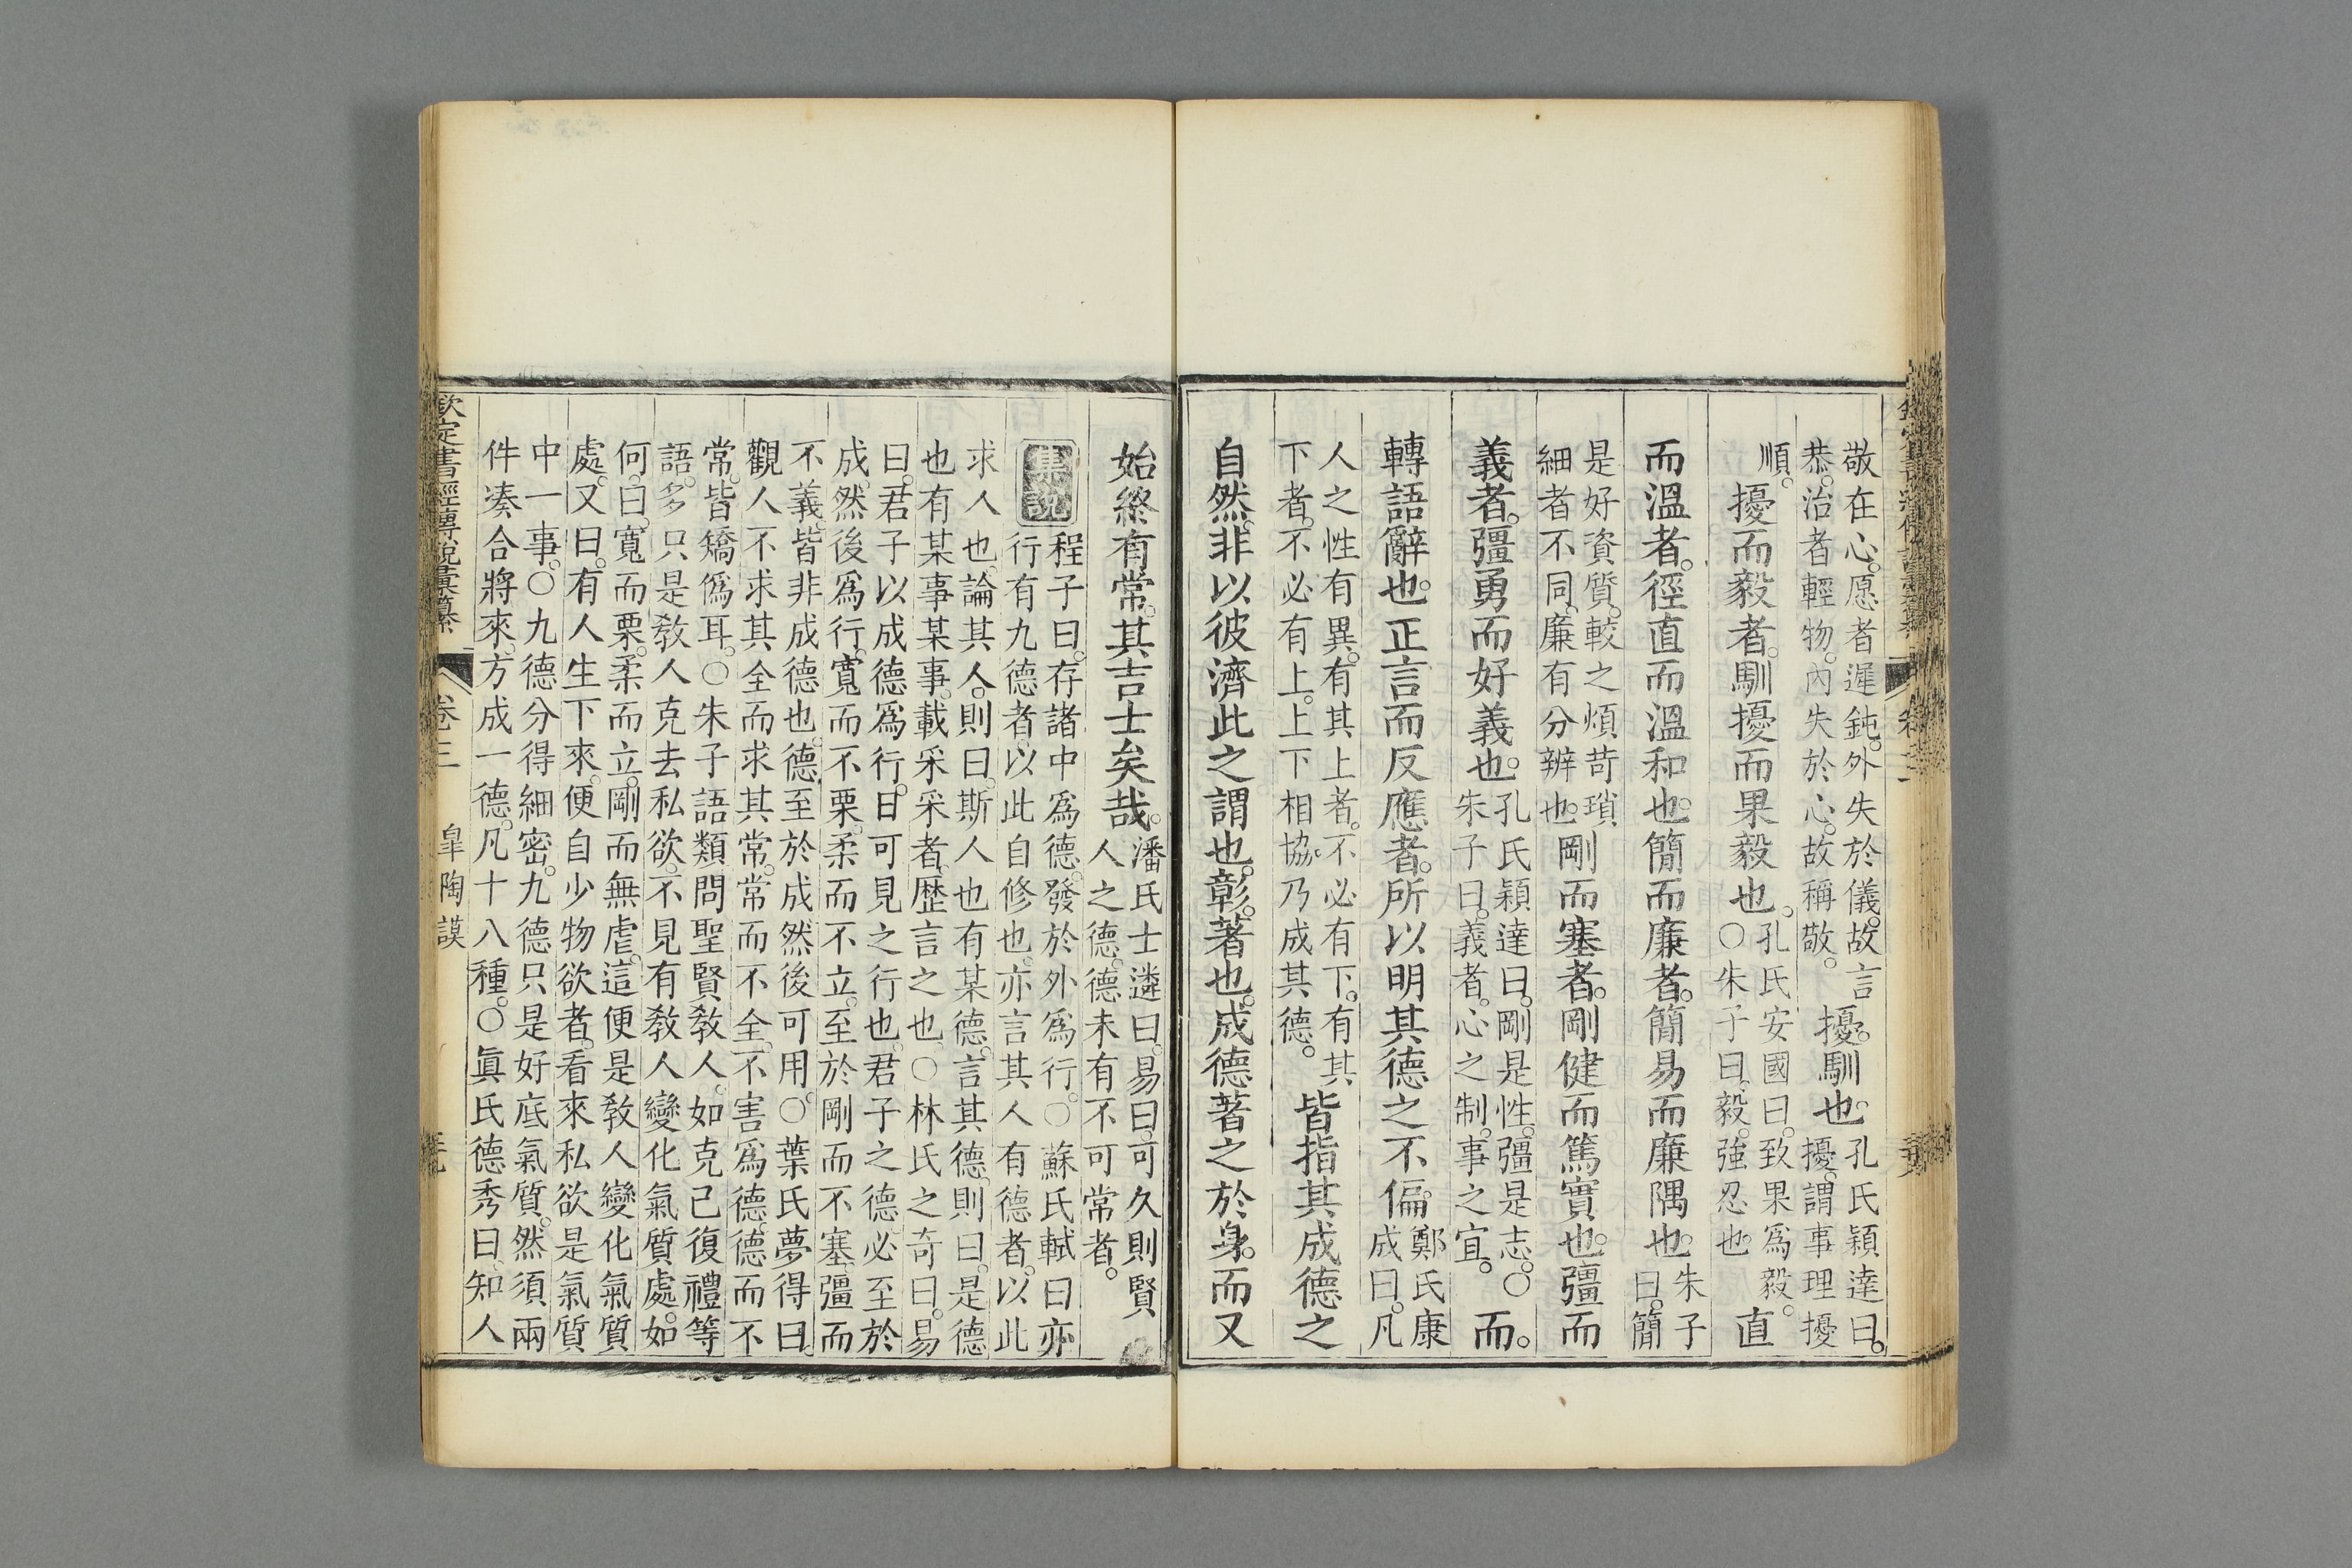 敬在心。愿者遲鈍。外失於儀。故言恭。治者輕物。內失於心。故稱敬。擾。馴也。孔氏穎達曰。擾。謂事理擾
順。擾而毅者。馴擾而果毅也。孔氏安國曰。致果爲毅。○朱子曰。毅。強忍也。直
而溫者。徑直而溫和也。簡而廉者。簡易而廉隅也。朱子曰。簡
是好資質。較之煩苛瑣細者不同。廉有分辨也。剛而塞者。剛健而篤實也。彊而
義者。彊勇而好義也。孔氏穎達曰。剛是性。彊是志。○朱子曰。義者。心之制。事之宜。而。
轉語辭也。正言而反應者。所以明其德之不偏。鄭氏康成曰。凡
人之性有異。有其上者。不必有下。有其下者。不必有上。上下相協。乃成其德。皆指其成德之
自然。非以彼濟此之謂也。彰。著也。成德著之於身。而又
始終有常。其吉士矣哉。潘氏士遴曰。易曰。可久則賢人之德。德未有不可常者。
集說
程子曰。存諸中爲德。發於外爲行。○蘇氏軾曰亦
行有九德者。以此自修也。亦言其人有德者。以此
求人也。論其人。則曰。斯人也有某德。言其德。則曰。是德
也有某事某事。載采采者。歷言之也。○林氏之奇曰。易
曰。君子以成德爲行。日可見之行也。君子之德必至於
成。然後爲行。寬而不栗。柔而不立。至於剛而不塞。彊而
不義。皆非成德也。德至於成然後可用。○葉氏夢得曰。
觀人不求其全而求其常。常而不全。不害爲德。德而不
常。皆矯僞耳。○朱子語類問聖賢敎人。如克己復禮等
語。多只是敎人克去私欲。不見有敎人變化氣質處。如
何。曰。寬而栗。柔而立。剛而無虐。這便是敎人變化氣質
處。又曰。有人生下來。便自少物欲者。看來私欲是氣質
中一事。○九德分得細密。九德只是好底氣質。然須兩
件湊合將來。方成一德。凡十八種。○眞氏德秀曰。知人
欽定書經傳說彙纂
卷三
皐陶謨